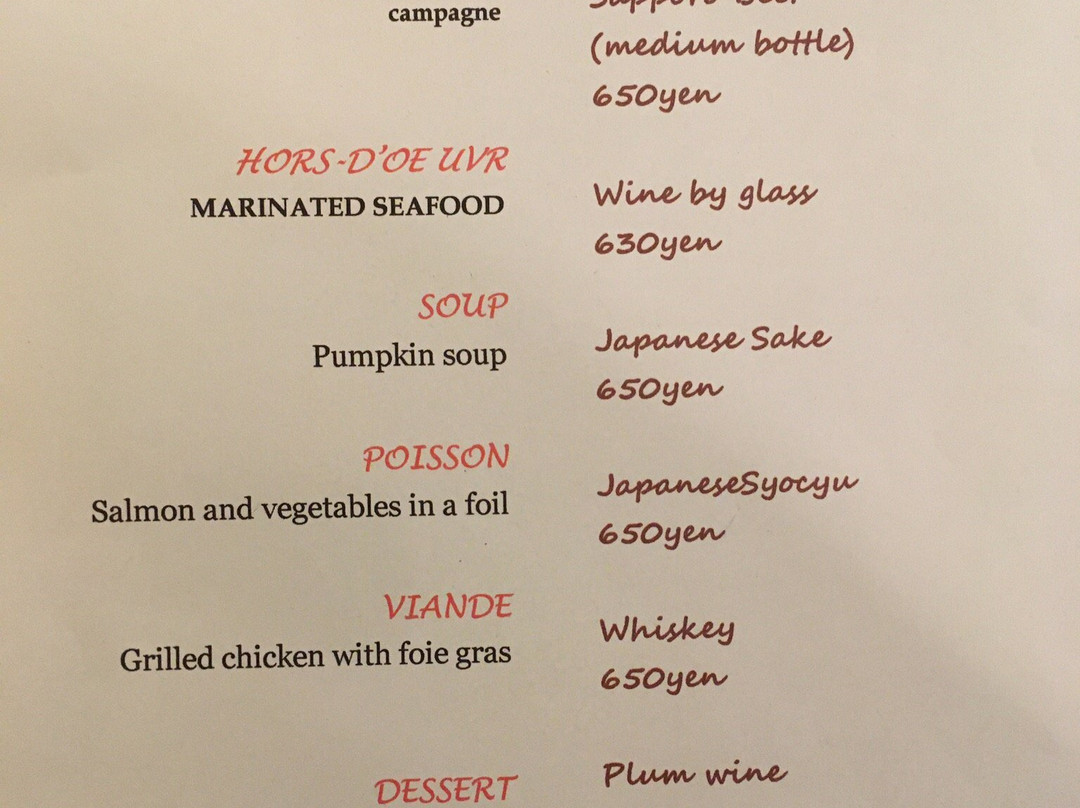 campagne
HORS-D'OE UVR
MARINATED SEAFOOD
SOUP
Pumpkin soup
POISSON
Salmon and vegetables in a foil
VIANDE
Grilled chicken with foie gras
DESSERT
Sapporo Beer
(medium bottle)
650yen
Wine by glass
630yen
Japanese Sake
650yen
JapaneseSyocyu
650yen
Whiskey
650yen
Plum wine